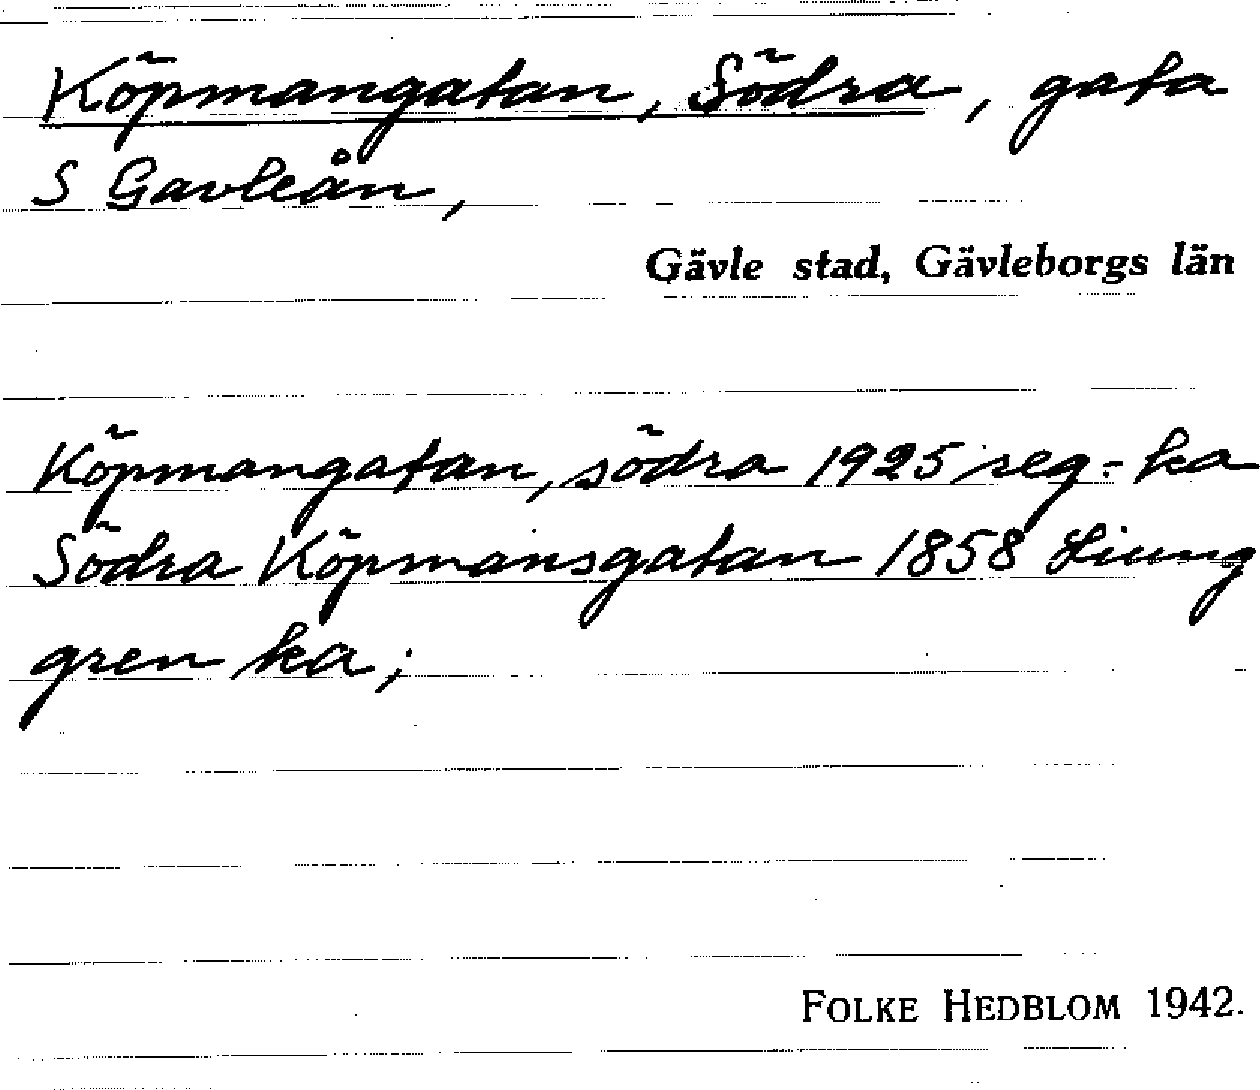 Köpmangatan, Södra, gata
S Gavleån,
Gävle stad, Gävleborgs län
Köpmangatan, södra 1925 reg-ka
Södra Köpmansgatan 1858 Liung
gren ka;
FOLKE HEDBLOM 1942.